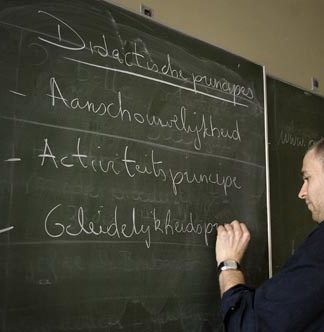 Didactische principes
- Aanschouwelijkheid
- Activiteitsprincipe
- Geleidelijkheidspr
www.